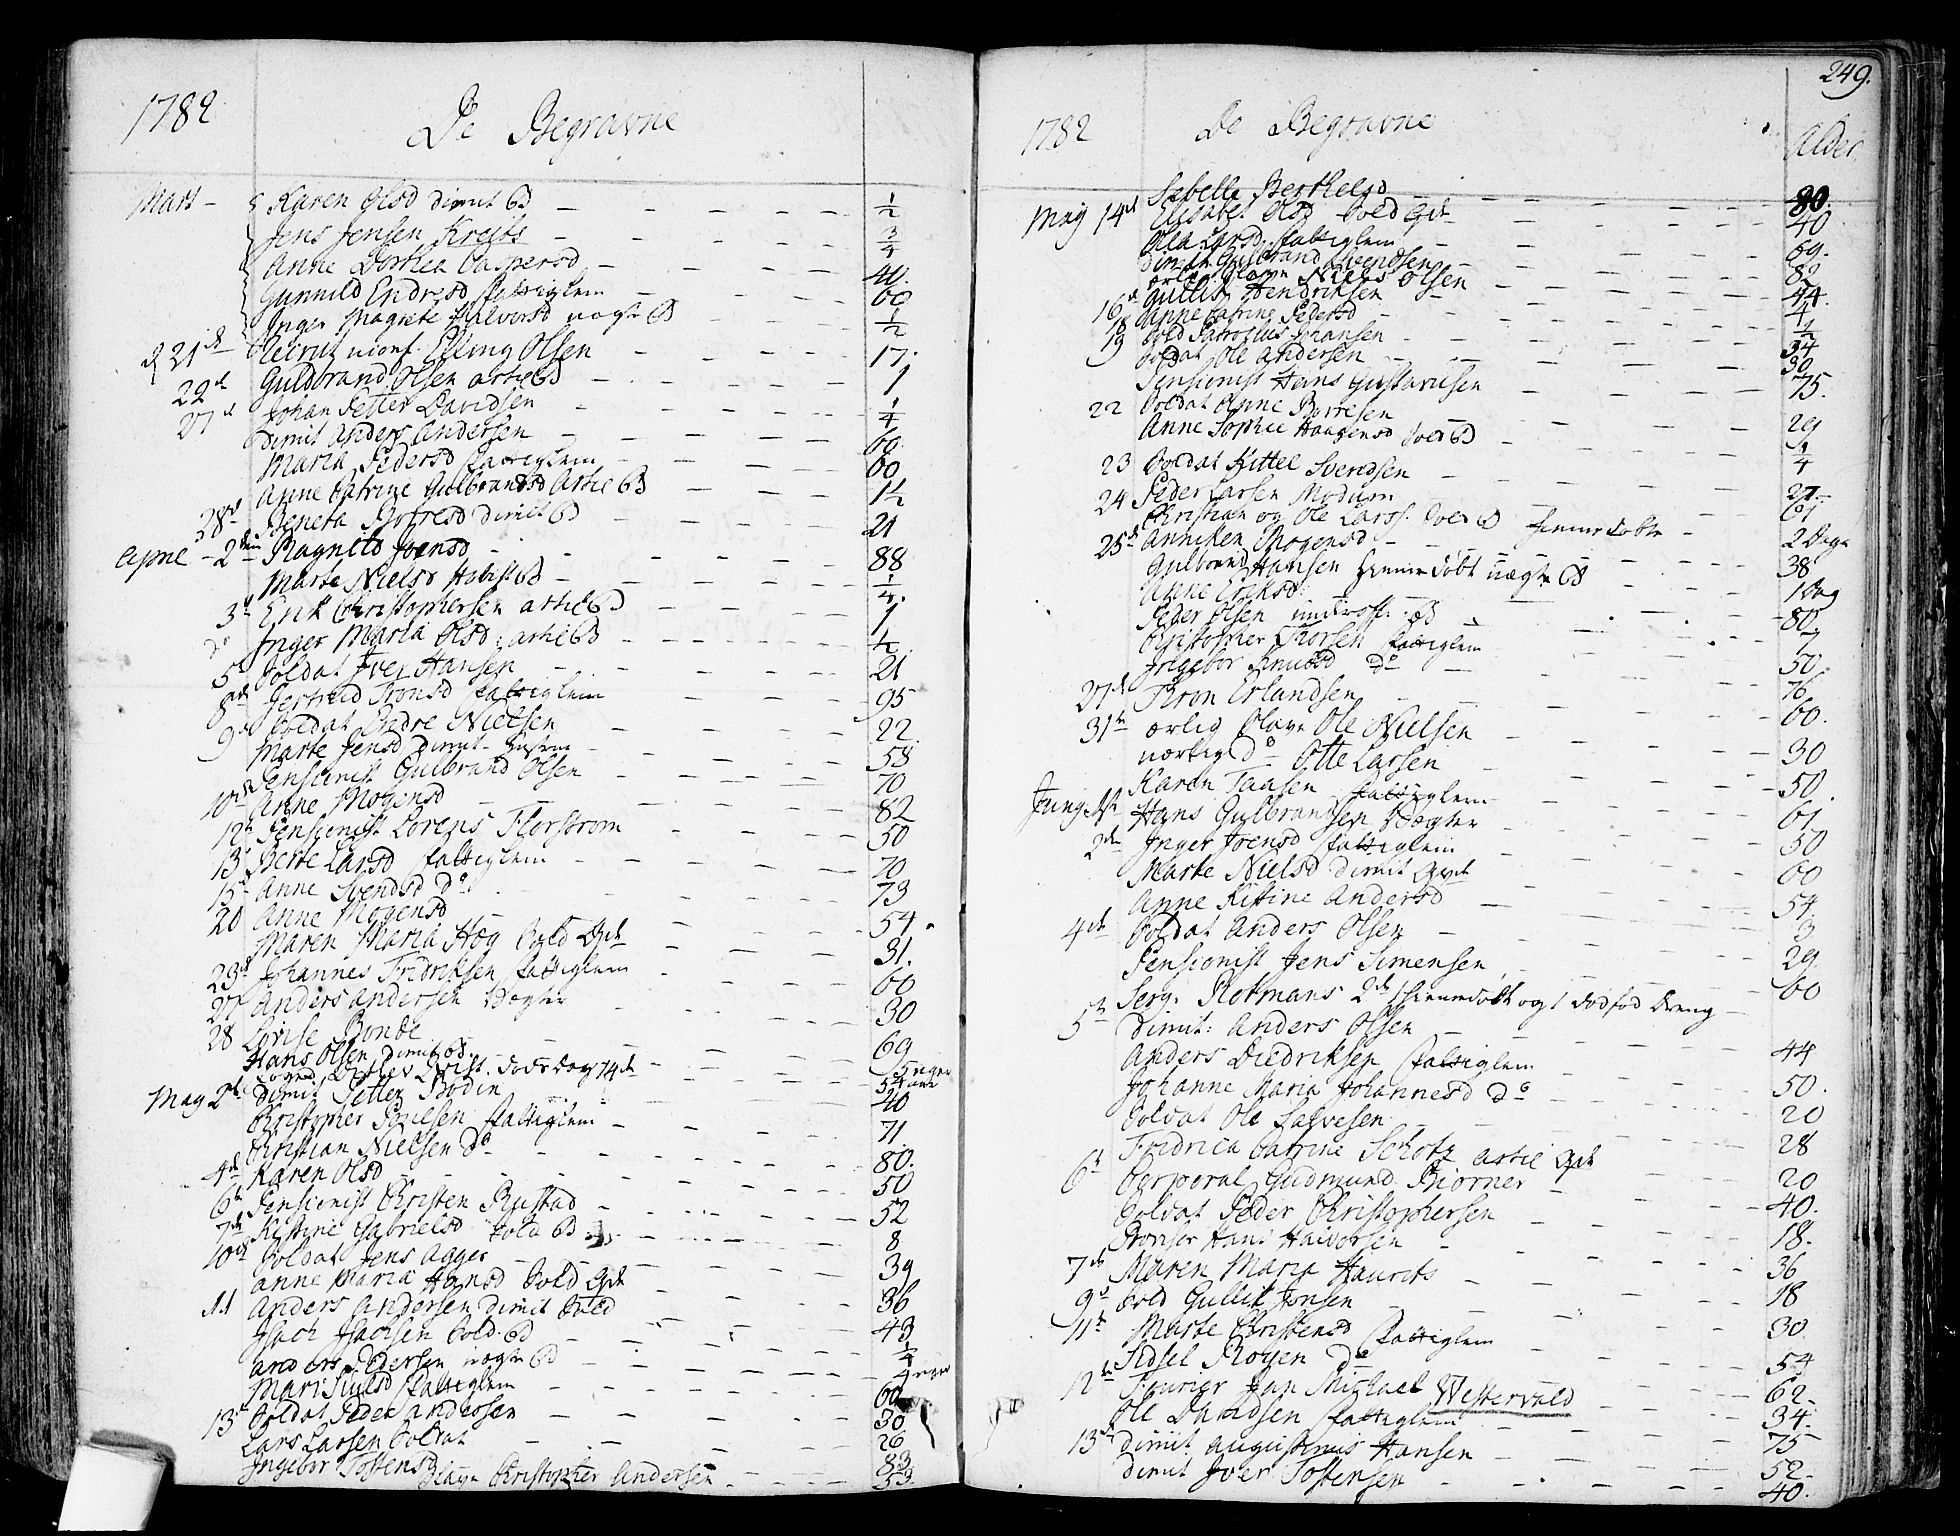 1782
De Begravne
Mart - Karen Olsd dimit B
1/2
Jens Jensen Kreits
3/4
Anne Dorthea Caspersd
40.
Gunnild Endresd fattiglem
60
Inger Magrete Halvorsd vægt B
1/2
d 21d Elling Olsen
17.
22d Guldbrand Olsen artil B
1
27d Johan Petter Davidsen
1/4
Dimit Anders Andersen
60
Maria Pedersd fattiglem
60
Anne Catrine Gulbrandsd Artil B
1 1/2
28d Beneta Bofresd dimit B
21
April - 2den Ragnild Joensd
88
Marte Nielsd B
1/4.
3d Erik Christophersen artil B
1
do Inger Maria Olsd: artil B
5 Soldat Iver Hansen
21
8de Jertrud Tronsd fattiglem
95
9d Soldat Endre Nielsen
22.
Marte Jensd dimit
58
10de Pensionist Gulbrand Olsen
70
Anne Mogensd
82
12t Pensionist Lorens Florstrom
50
13d Berte Larsd fattiglem
70
15d Anne Svendsd do
73
20 Anne Mogensd
54.
Maren Maria Høg Sold Qvt
31.
23d Johannes Fridriksen fattiglem
60
27 Anders Andersen Vægter
30
28 Lovise Bonde
69
Hans Olsen Dimit B.
May 2d Dimit Petter Bodin
40
Christopher Poulsen fattiglem
71
Christian Nielsen do
80.
4de Karen Olsd
50
6t Pensionist Christen Rustad
52
7de Kistine Gabrielsd Sold B
8
10de Soldat Jens Agger
39
Anne Maria Hansd Sold Qvt
36
11 Anders Andersen Dimit Sold
43
Isach Isachsen Sold. B
1/4
Anders Pedersen vægt B
Mari Siulsd fattiglem
60
13d Soldat Peder Andersen
30
Lars Larsen Soldat
26
Ingebor Tostensd
83.
Slave Christopher Andersen
53.
249.
1782
De Begravne
Alder
Isebella Berthelsd
80.
May 14d Elisabet Olsd Sold Qvt
40
Ola Larsd fattiglem
69.
Dimit Gulbrand Svendsen
82
ærlig Slave Niels Olsen
44.
16d Gullik Hendriksen
18 Anne Catrine Pedersd
1/2
19 Sold Patroclus Johansen
34
Soldat Ole Andersen
30
Pensionist Hans Gustavesen
75.
22 Soldat Anne Borresen
29
Anne Sophie Haagensd Sold B
1/4
23 Soldat Kittel Svendsen
24 Peder Larsen Modum
27.
Christian og Ole Larss. Sold B hiemmedøbte
2 Dage
25d Anniken Mogensd
38
Gulbrand Hansen hiemmedøbt vægt B
1 Dag
Anne Eriksd.
80.
Peder Olsen underoff. B
Christopher Thorsen fattiglem
50.
Ingebor Knudsd do
76
27d Tron Erlandsen
60.
31te ærlig Slave Ole Nielsen
30
uærlig do Otte Larsen
50.
Karen Taasen fattiglem
61
Juny 1ste Hans Gulbrandsen Vægter
50
2de Inger Joensd fattiglem
60
Marte Nielsd dimit Qvt
54
Anne Kistine Andersd
3
4de Soldat Anders Olsen
29
Pensionist Jens Simensen
60
Serg: Rotmans 2de 1 hiemmedøbt og 1 dødfød Dreng
5t Dimit: Anders Olsen
44
Anders Diedriksen fattiglem
50.
Johanne Maria Johannesd do
20
Soldat Ole Salvesen
28
Fridrica Catrine Schotz artil Qvt
20
6t Corporal Gudmund Biorner
40.
Soldat Peder Christophersen
18.
Hans Halvorsen
36
7de Maren Maria Haurits
18
9d Sold Gullik Jonsen
30
11te Marte Christensd fattiglem
54
Sidsel Royen do
62-
12te Fourier Jan Michael Westervald
34
Ole Davidsen fattiglem
75
13de Dimit Augustinus Hansen
52-
Dimit Iver Tostensen
40.